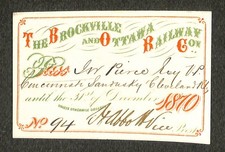 THE BROCKVILLE AND OTTAWA RAILWAY COY
Pass Pierce V.P.
Cincinnati Sandusky Cleveland
until the 31st of December 1870
No 94 Abbott Vice Pres